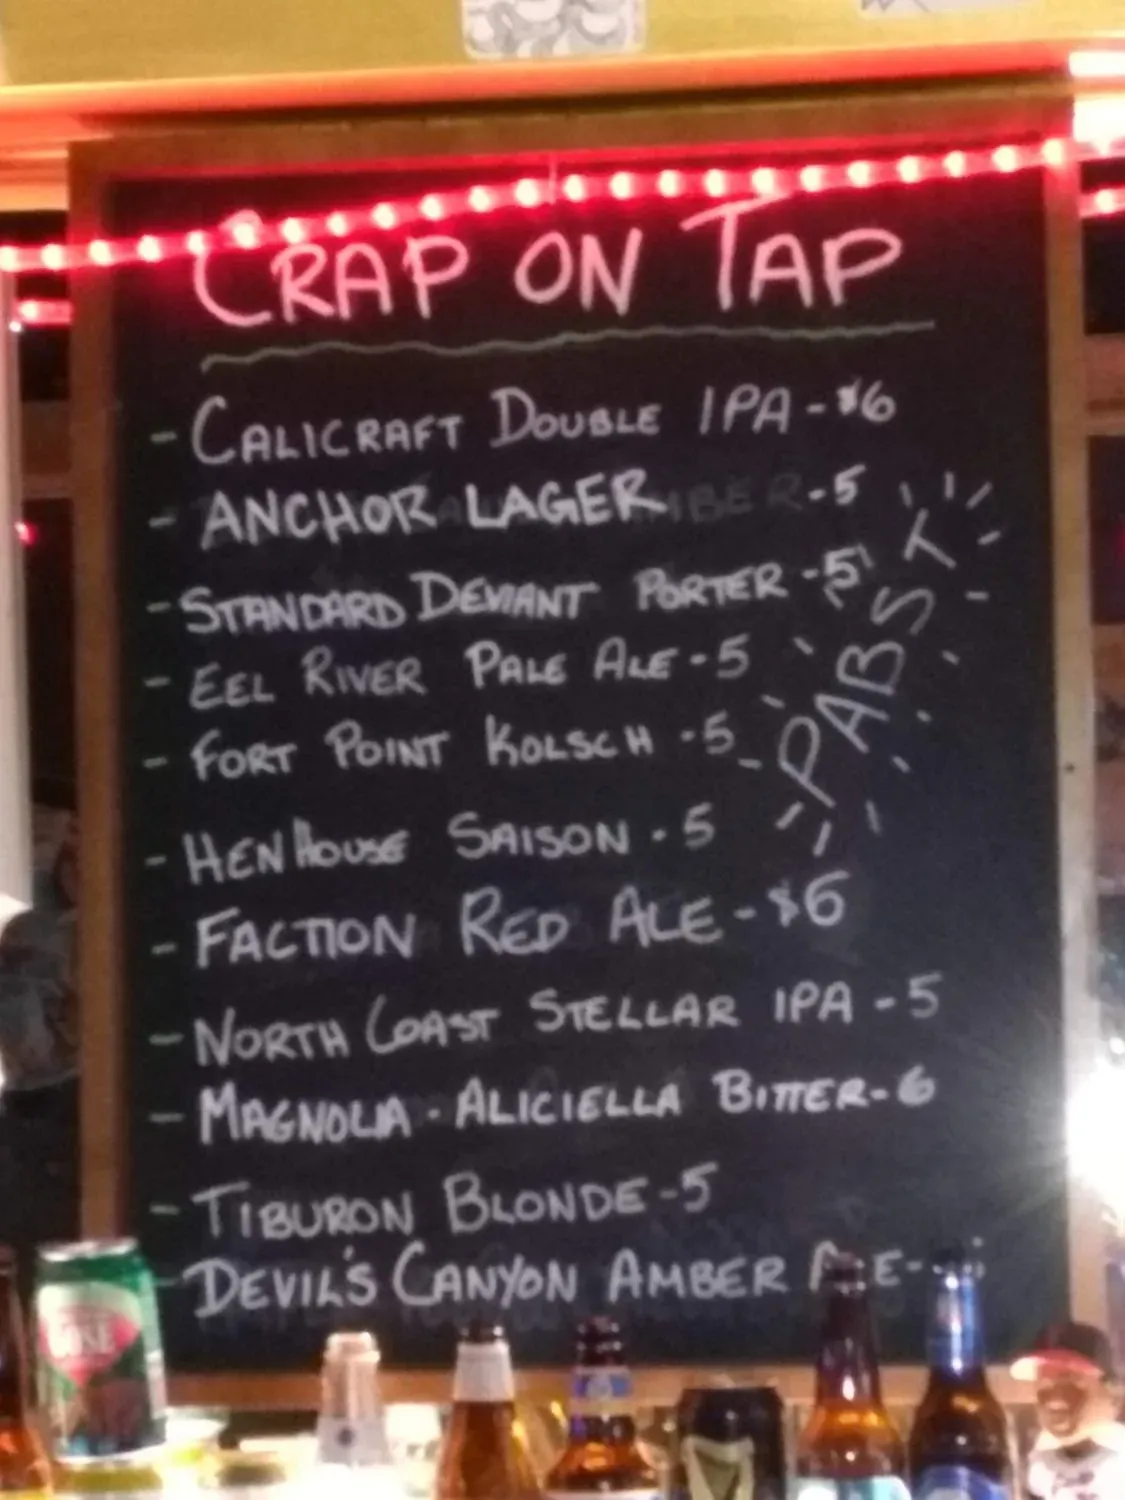 CRAP ON TAP
- CALICRAFT DOUBLE IPA - $6
- ANCHOR LAGER - 5
- STANDARD DEVIANT PORTER - 5
- EEL RIVER PALE ALE - 5
- FORT POINT KOLSCH - 5
PABST
- HENHOUSE SAISON - 5
- FACTION RED ALE - $6
- NORTH COAST STELLAR IPA - 5
- MAGNOLIA - ALICIELLA BITTER - 6
- TIBURON BLONDE - 5
- DEVIL'S CANYON AMBER ALE -